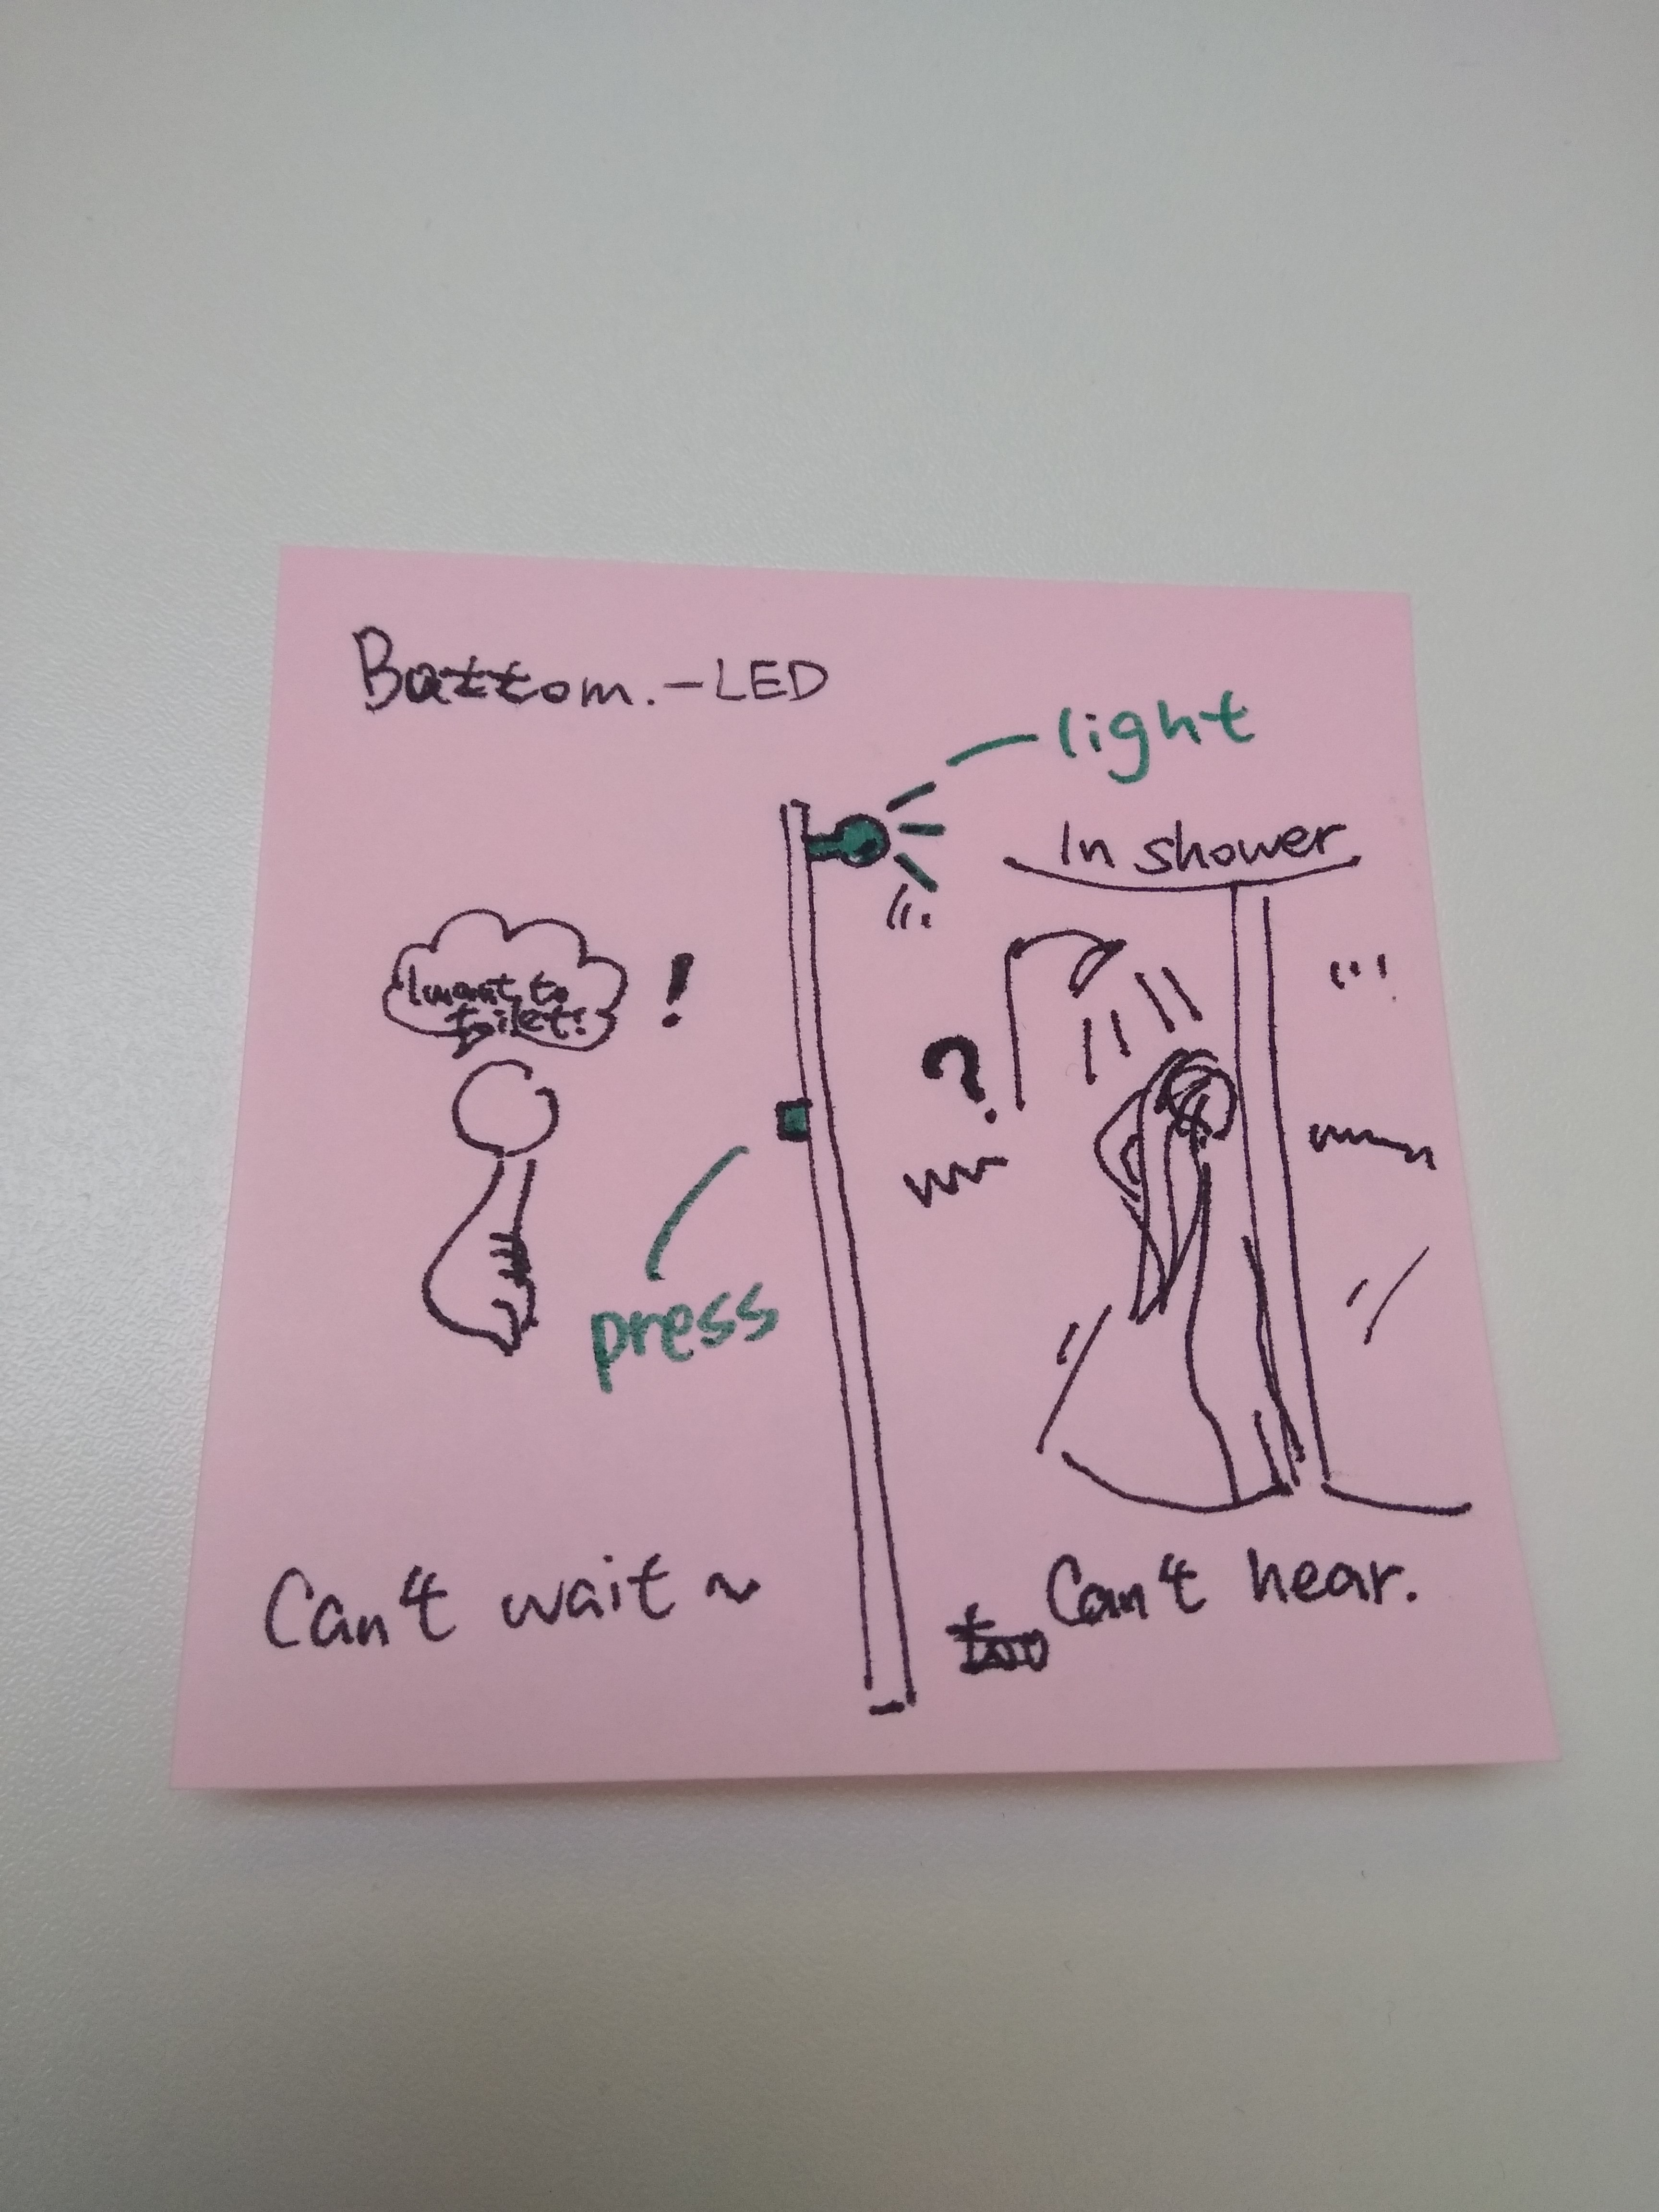 Battom.-LED
light
In shower
I want to
toilet!
!
?
press
Can't wait ~
Can't hear.